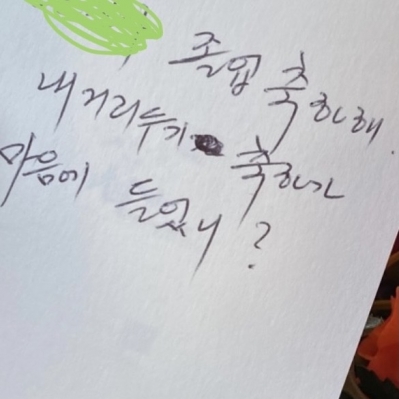 졸업 축하해.
내 거리두기 축하가
마음에 들었니?